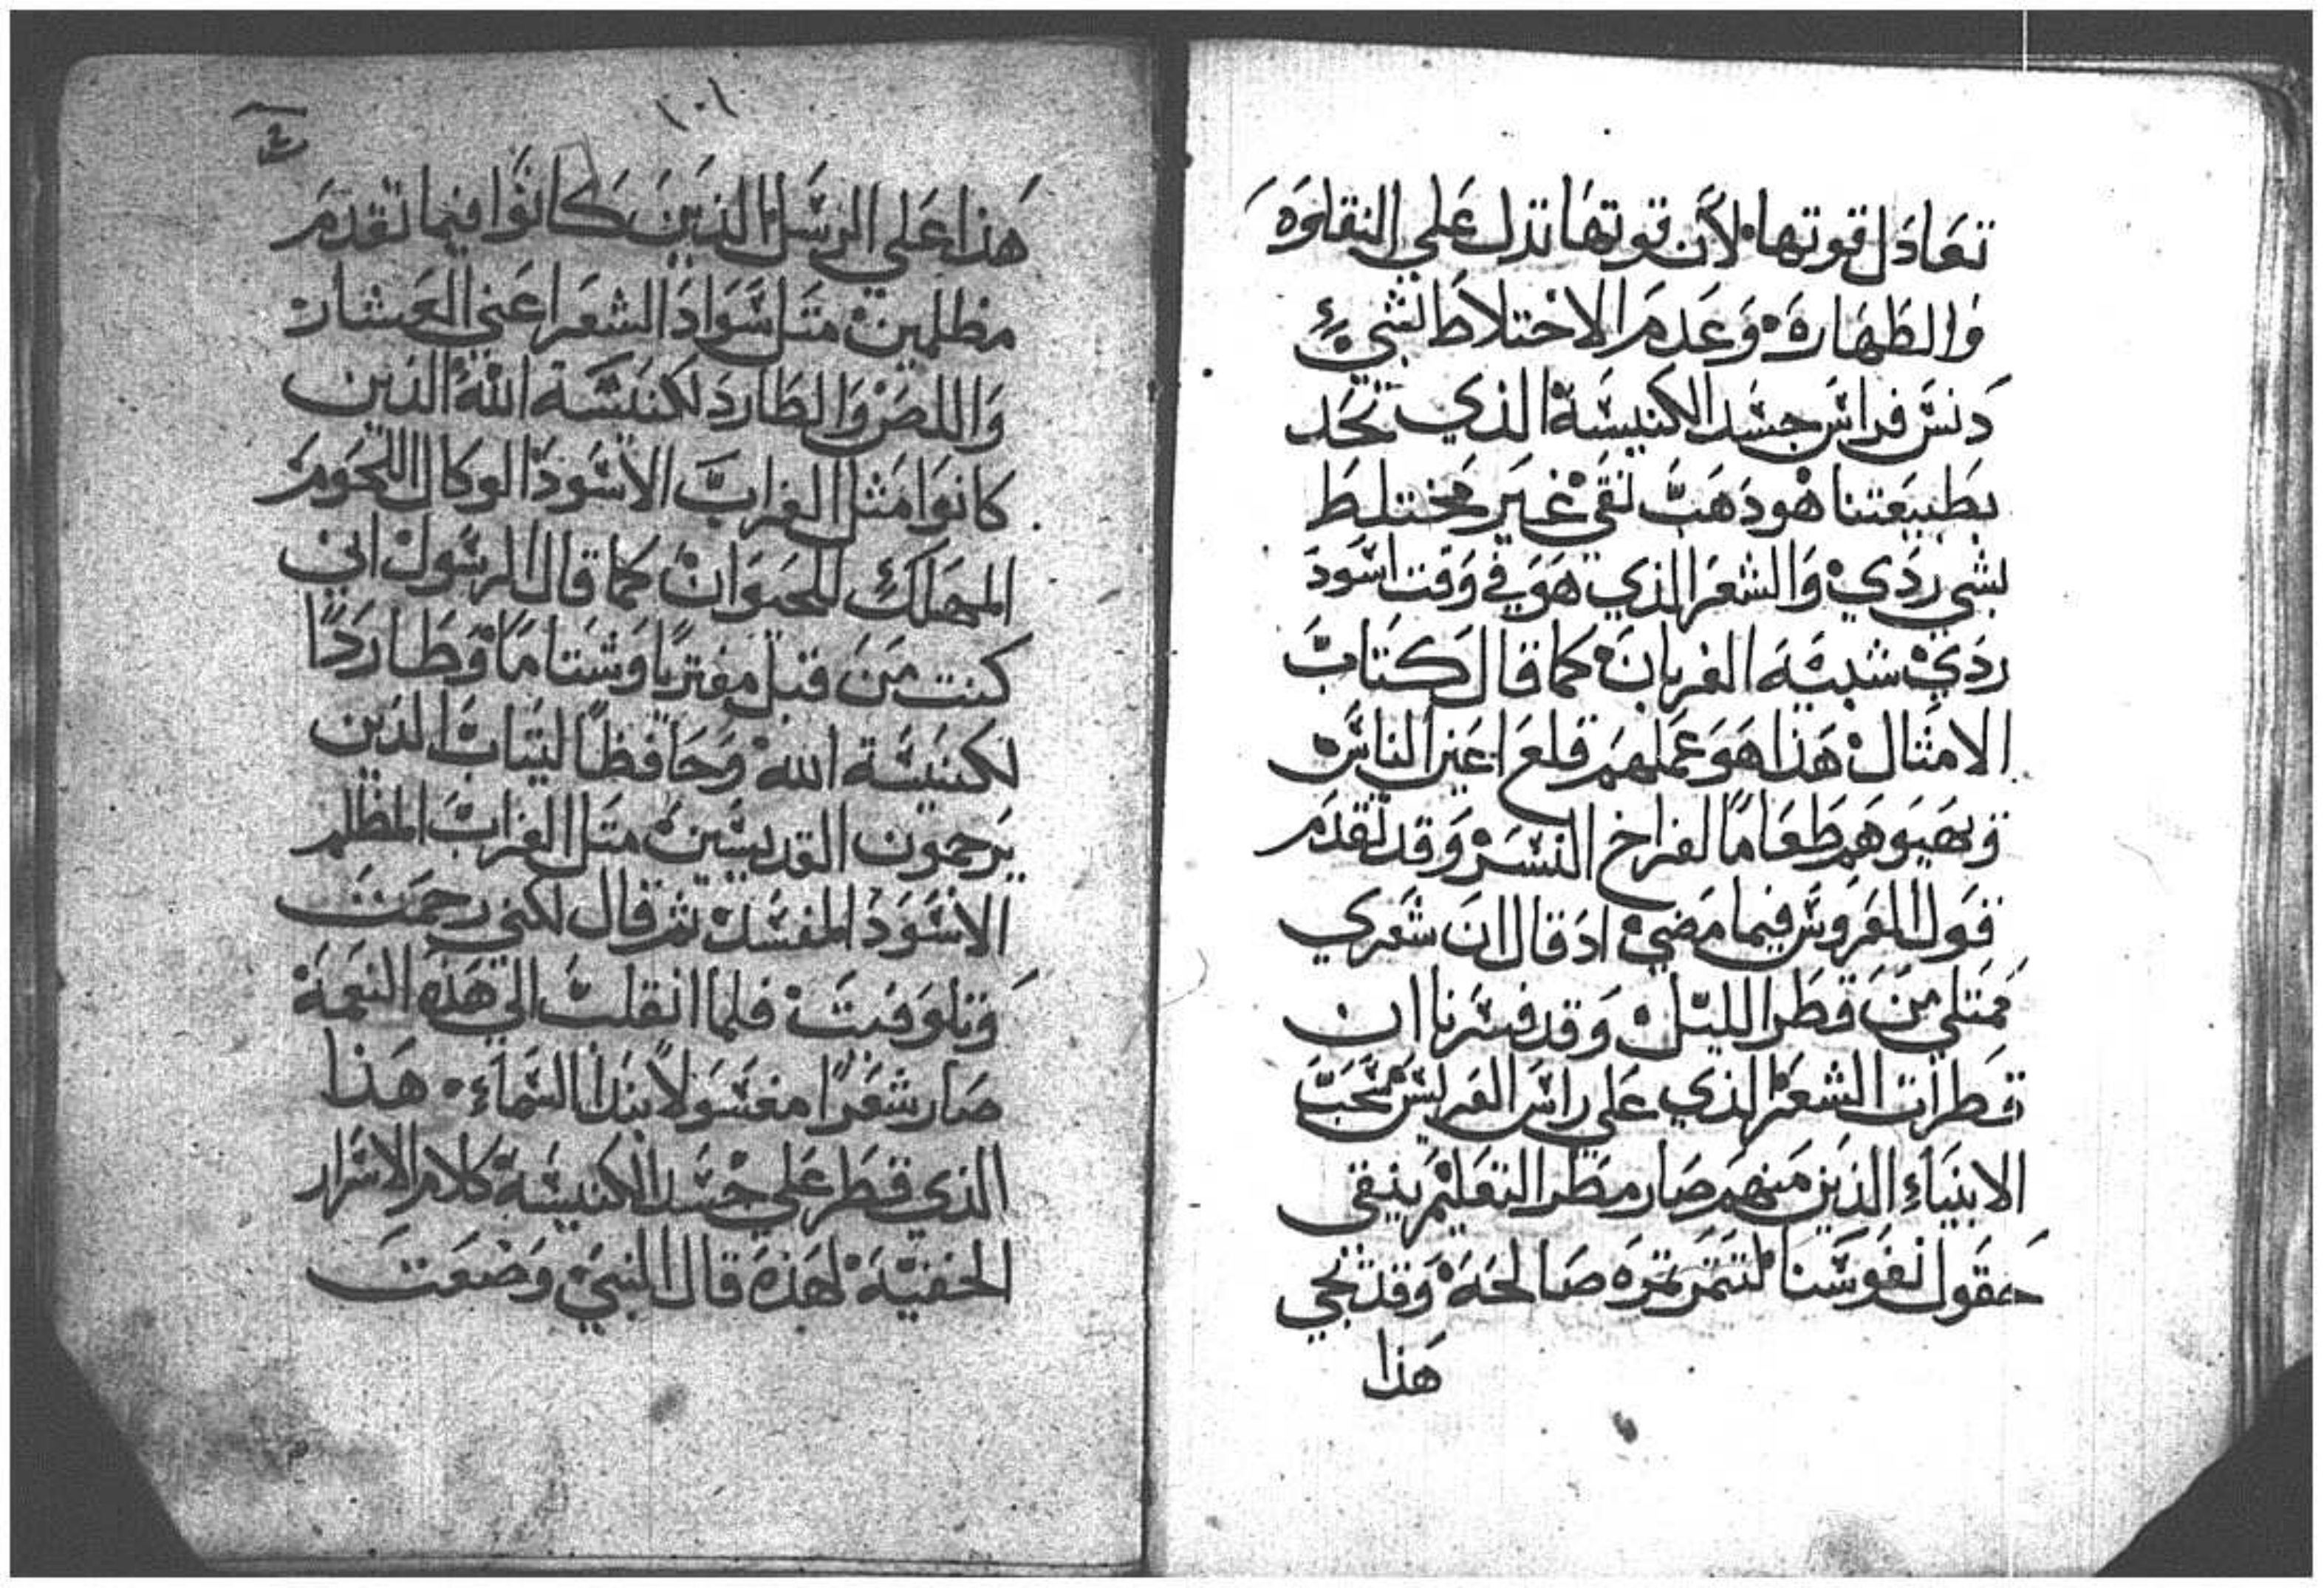 تعادل قوتها لان قوتها تدل علي النقاوه
والطهاره وعدم الاختلاط لشيء
دنس فراس جسد الكنيسة الذي تحد
بطبيعتنا هو دهب نقي غير مختلط
بشي ردي والشعر الذي هو في وقت اسود
ردي شبيه الغربان كما قال كتاب
الامثال هذا هو عملهم قلع اعين الناس
ويهيوهم طعاما لفراخ النسر وقد تقدم
قول العروس فيما مضي اد قال ان شعري
ممتلي من قطر الليل وقد فسرنا ان
قطرات الشعر الذي علي راس العريس سحب
الانبياء الذين منهم صار مطر التعليم ينقي
حقول نفوسنا لتتمر تمره صالحة وقد تجي
هذا
١٠١
هذا علي الرسل الذين كانوا فيما تقدم
مظلمين متل سواد الشعر اعني العشار
واللص والطارد لكنيسة الله الذين
كانوا مثل الغراب الاسود الوكال اللحوم
المهلك للحيوان كما قال الرسول اني
كنت من قبل مفتريا وشتاما وطاردا
لكنيسة الله وحافظا لثياب الذين
يرجمون القديسين متل الغراب المظلم
الاسود المفسد ثم قال لكني رحمت
وتلوفيت فلما انقلب الي هذه النعمة
صار شعرا مغسولا بندا السماء هذا
الذي قطر علي جسد الكنيسة كلام الاسرار
الخفية لهذه قال النبي وضعت